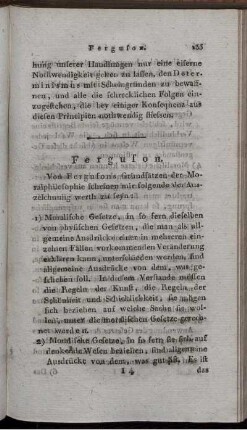 Ferguson. 255
mung unserer Handlungen nur eine eiserne
Nothwendigkeit gelten zu lassen, den Deter-
minismus mit Scheingründen zu bewaff-
nen, und alle die schrecklichen Folgen ein-
zugestehen, die bey einiger Konsequenz aus
diesen Principien nothwendig fliessen.
Ferguson.
Von Fergusons Grundsätzen der Mo-
ralphilosophie scheinen mir folgende der Aus-
zeichnung werth zu seyn:
1) Moralische Gesetze, in so fern dieselben
von physischen Gesetzen, die man als all-
gemeine Ausdrücke einer in mehrern ein-
zelnen Fällen vorkommenden Veränderung
erklären kann, unterschieden werden, sind
allgemeine Ausdrücke von dem, was ge-
schehen soll. In diesem Verstande müssen
die Regeln der Kunst, die Regeln der
Schönheit und Schicklichkeit, sie mögen
sich beziehen auf welche Sache sie wol-
len, unter die moralischen Gesetze gerech-
net werden.
2) Moralische Gesetze, in so fern sie sich auf
denkende Wesen beziehen, sind allgemeine
Ausdrücke von dem, was gut ist. Es ist
I 4 das